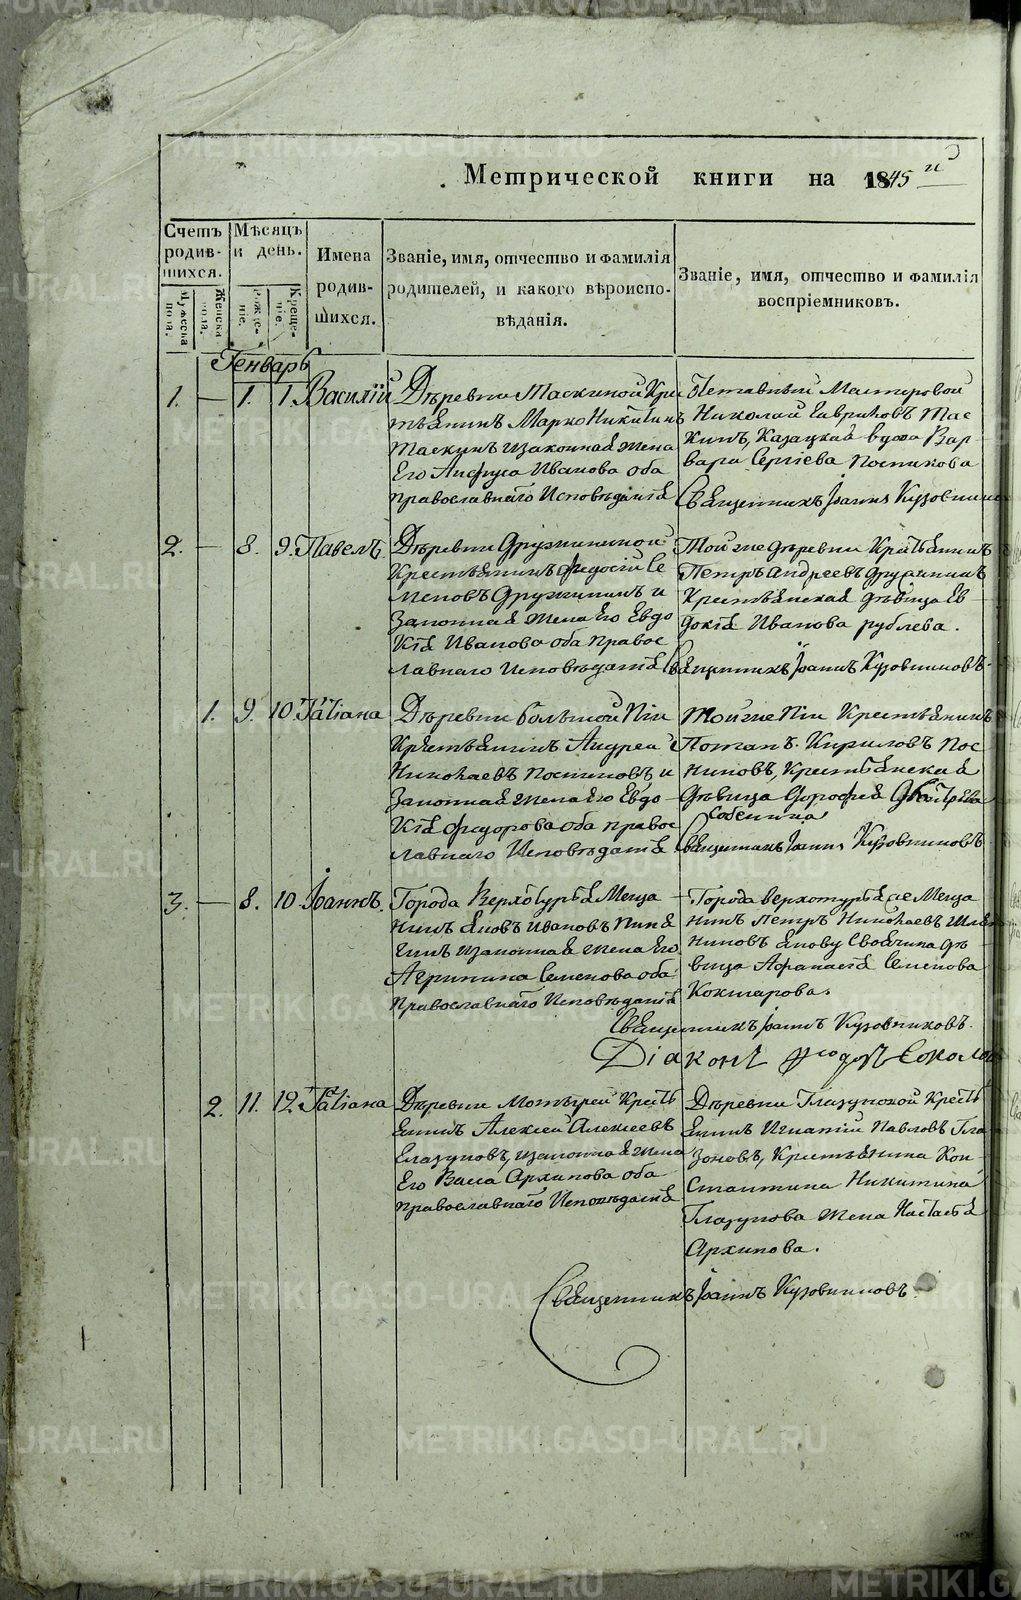 Метрической книги на 1845й
Счетъ родив-шихся.
Мужеска пола.
Женска пола.
Мѣсяцъ и день.
Рожде-ніе.
Креще-ніе.
Имена родив-шихся.
Званіе, имя, отчество и фамилія родителей, и какого вѣроиспо-вѣданія.
Званіе, имя, отчество и фамилія воспріемниковъ.
Генварь
1. — 1. 1. Василій
Дѣревни Таскиной Кре
стьянинъ Марко Никитинъ
Таскинъ изаконная жена
Его Анфуса Иванова оба
православнаго Исповѣданія
Мастеровой
Николай Гавриловъ Тас
кинъ, Казацкая вдова Вар
вара Сергіева Постникова
Священникъ Іоаннъ Кузовников
2. — 8. 9. Павелъ.
Дѣревни Дружининой
Крестьянинъ Федосій Се
меновъ Дружининъ и
Законная жена Его Евдо
Кія Иванова оба право
славнаго Исповѣданія
Той же дѣревни Крестьянинъ
Петръ Андреевъ Дружининъ
Крестьянская дѣвица Ев
докія Иванова рублева.
Священникъ Іоаннъ Кузовниковъ.
1. 9. 10. Татіана
Дѣревни болшой Піи
Крестьянинъ Андрей
Николаевъ постниковъ и
Законная жена Его Евдо
Кія федорова оба право
славнаго Исповѣданія
Той же Піи Крестьянинъ
Потапъ Кириловъ Пос
никовъ, Крестьянская
Дѣвица Дорофея
Собенина
Священникъ Іоаннъ Кузовниковъ
3. — 8. 10 Іоаннъ.
Города Верхотурья Меща
нинъ Яковъ Ивановъ
изаконная жена Его
Агрипина Семенова оба
Православнаго Исповѣданія
Города верхотурья Меща
нинъ Петръ Николаевъ
Якову Своячина дѣ
вица Афанасія Семенова
Кокшарова.
Священникъ Іоаннъ Кузовниковъ.
Діаконъ Ѳиодоръ Соколов
2. 11. 12. Татіана
Дѣревни Крестьь
янинъ Алексей Алексеевъ
Глазуновъ, изаконная жена
Его Васса Архипова оба
православнаго Исповѣданія
Дѣревни Глазунской Кресть
янинъ Игнатій Павловъ Гла
Крестьянина Кон
стантина Никитина
Глазунова жена Настасья
Архипова.
Священникъ Іоаннъ Кузовниковъ
METRIKI.GASO-URAL.RU